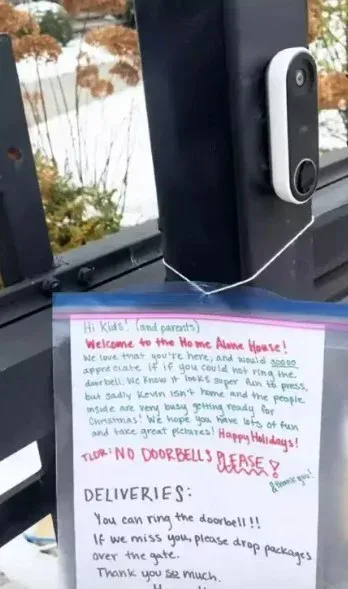 Hi Kids! (and parents)
Welcome to the Home Alone House!
We love that you're here, and would soooo
appreciate if if you could not ring the
doorbell. We know it looks super fun to press,
but sadly Kevin isn't home and the people
inside are very busy getting ready for
Christmas! We hope you have lots of fun
and take great pictures! Happy Holidays!
TLDR: NO DOORBELLS PLEASE!
& thank you!
DELIVERIES:
You can ring the doorbell!!
If we miss you, please drop packages
over the gate.
Thank you so much.